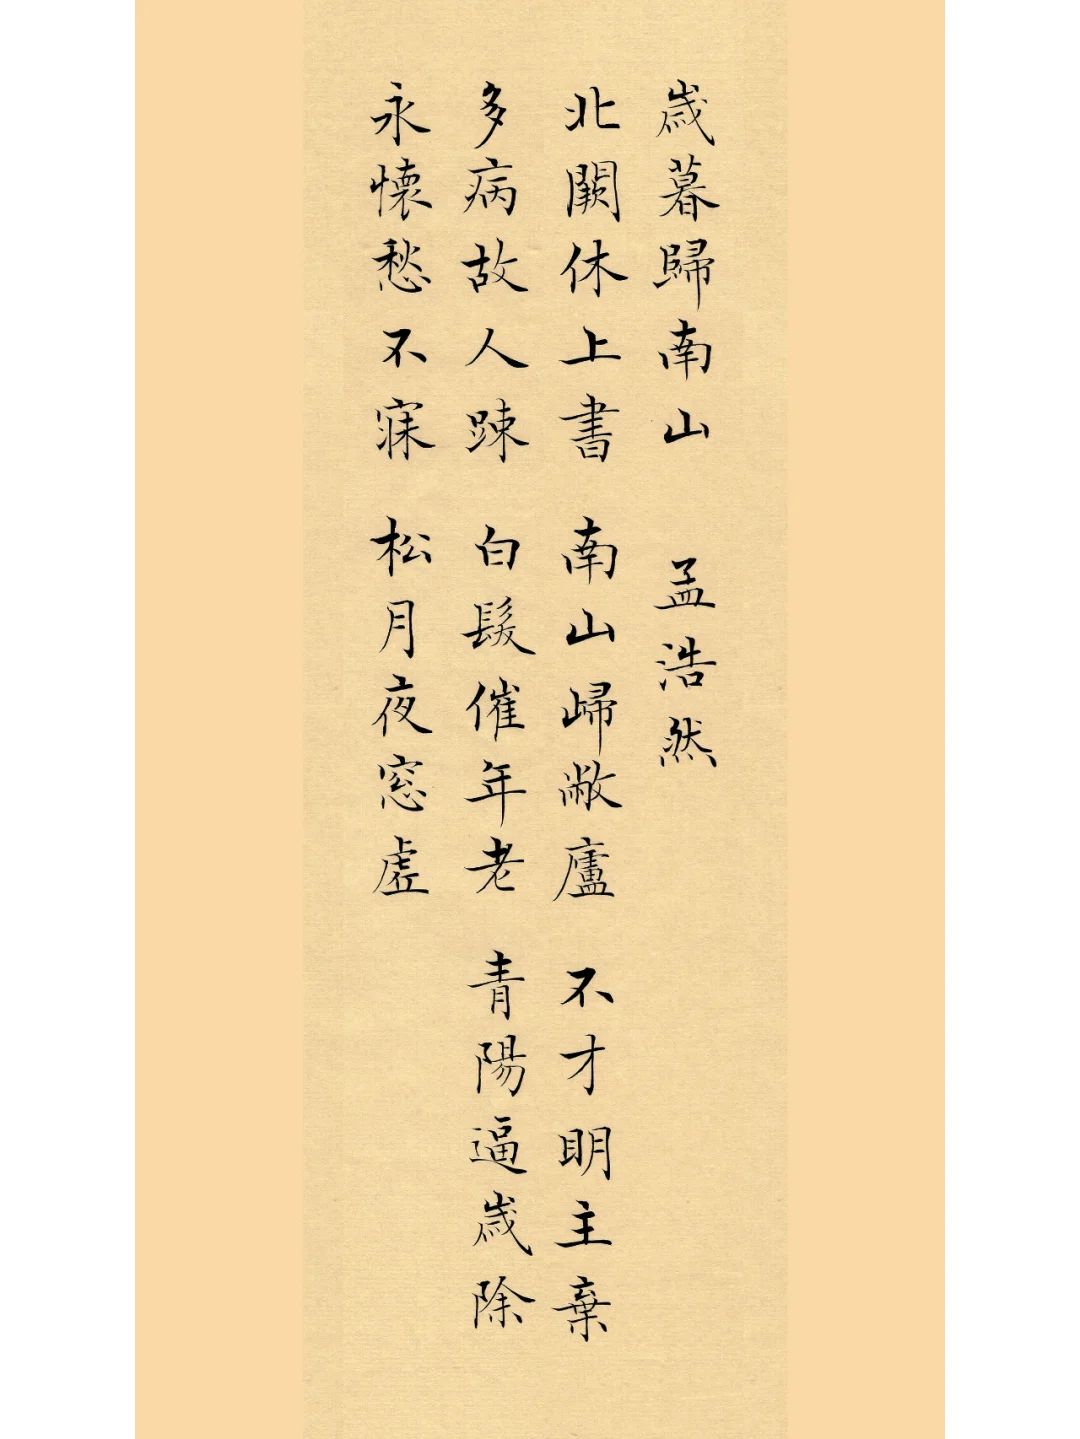 歲暮歸南山 孟浩然
北闕休上書 南山歸敝廬 不才明主棄
多病故人踈 白髮催年老 青陽逼歲除
永懷愁不寐 松月夜窓虛